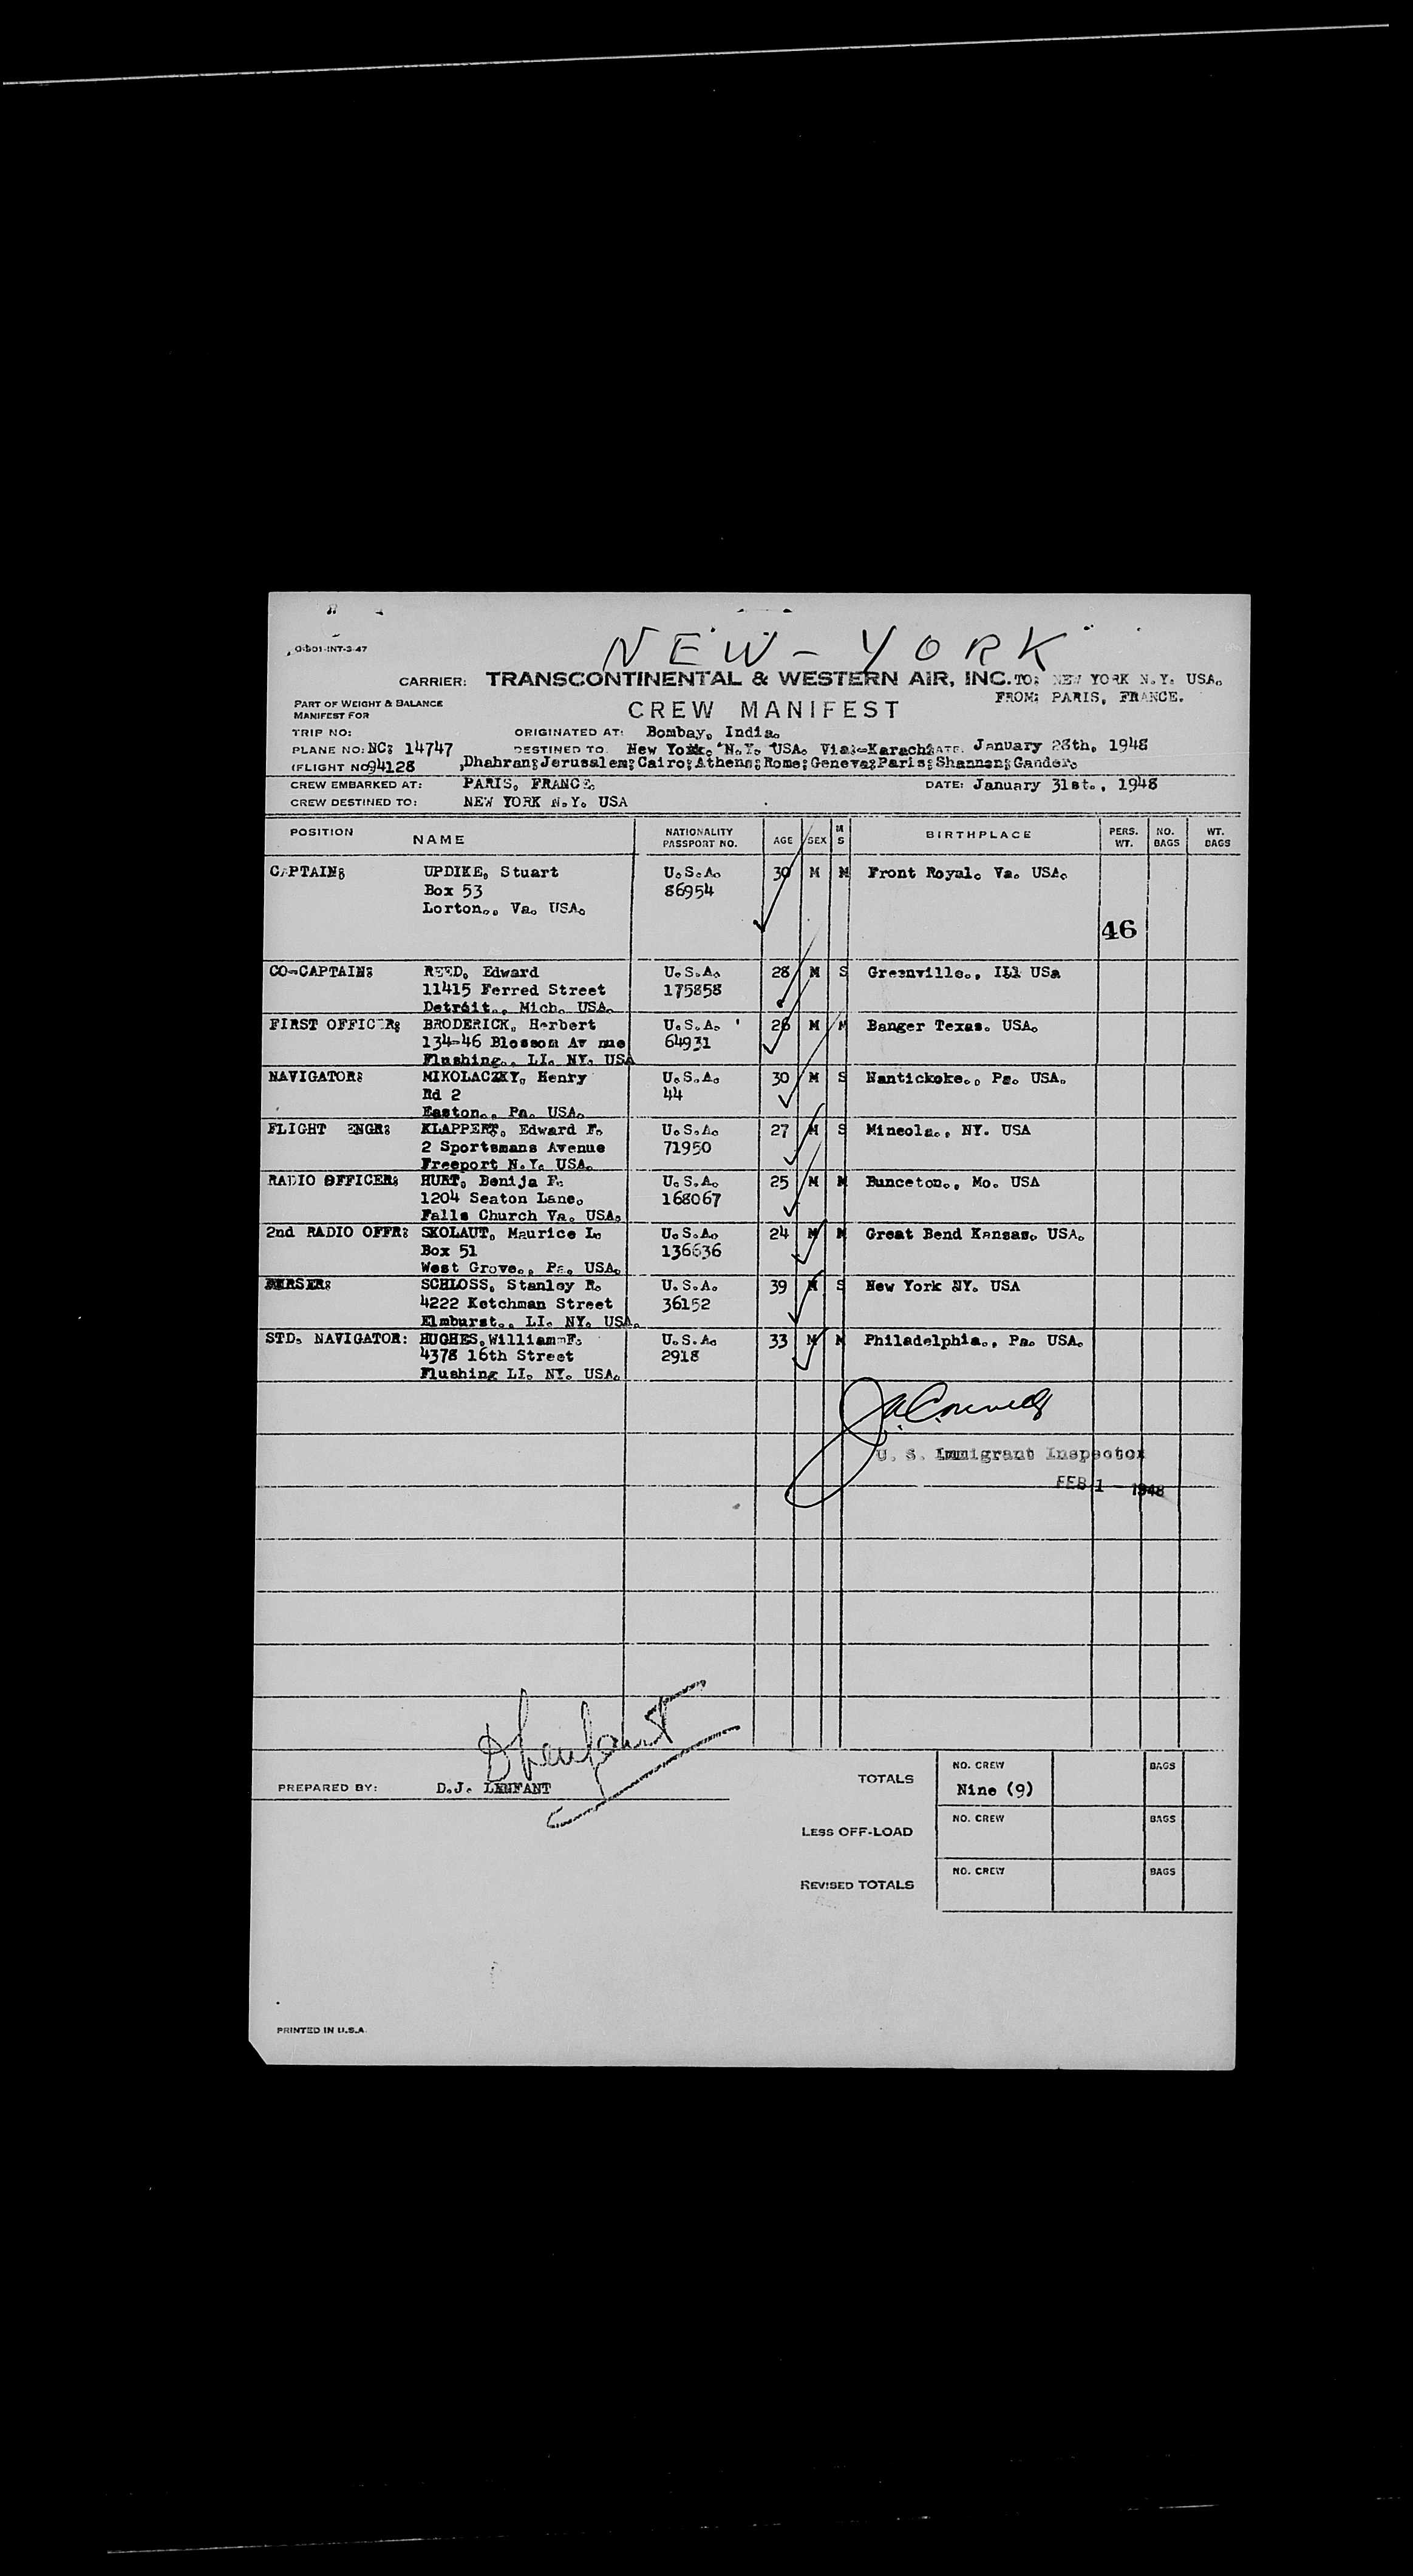 O-501-INT-3-47
NEW - YORK
CARRIER: TRANSCONTINENTAL & WESTERN AIR, INC. TO: NEW YORK N.Y. USA.
FROM: PARIS, FRANCE.
PART OF WEIGHT & BALANCE
MANIFEST FOR
CREW MANIFEST
TRIP NO: ORIGINATED AT: Bombay, India.
PLANE NO: NC: 14747 DESTINED TO New York. N.Y. USA. Via:-Karachi; DATE. January 28th, 1948
(FLIGHT NO 94128 ,Dhahran; Jerusalem; Cairo; Athens; Rome; Geneva; Paris; Shannon; Gander.
CREW EMBARKED AT: PARIS, FRANCE. DATE: January 31st., 1948
CREW DESTINED TO: NEW YORK N.Y. USA
POSITION NAME NATIONALITY PASSPORT NO. AGE SEX M S BIRTHPLACE PERS. WT. NO. BAGS WT. BAGS
CAPTAIN: UPDIKE, Stuart U.S.A. 30 M M Front Royal. Va. USA.
Box 53 86954
Lorton., Va. USA.
46
CO-CAPTAIN: REED, Edward U.S.A. 28 M S Greenville., Ill USa
11415 Ferred Street 175858
Detroit., Mich. USA.
FIRST OFFICER: BRODERICK, Herbert U.S.A. 26 M M Banger Texas. USA.
134-46 Blossom Av nue 64931
Flushing., LI. NY. USA
NAVIGATOR: MIKOLACZKY, Henry U.S.A. 30 M S Nantickoke., Pa. USA.
Rd 2 44
Easton., Pa. USA.
FLIGHT ENGR: KLAPPERT, Edward F. U.S.A. 27 M S Mineola., NY. USA
2 Sportsmans Avenue 71950
Freeport N.Y. USA.
RADIO OFFICER: HURT, Benija F. U.S.A. 25 M M Bunceton., Mo. USA
1204 Seaton Lane. 168067
Falls Church Va. USA.
2nd RADIO OFFR: SKOLAUT, Maurice L. U.S.A. 24 M M Great Bend Kansas. USA.
Box 51 136636
West Grove., Pa. USA.
PURSER: SCHLOSS, Stanley R. U.S.A. 39 M S New York NY. USA
4222 Ketchman Street 36152
Elmburst., LI. NY. USA.
STD. NAVIGATOR: HUGHES, William F. U.S.A. 33 M M Philadelphia., Pa. USA.
4378 16th Street 2918
Flushing LI. NY. USA.
U. S. Immigrant Inspector
FEB 1 - 1948
PREPARED BY: D.J. LENFANT
TOTALS NO. CREW Nine (9) BAGS
LESS OFF-LOAD NO. CREW BAGS
REVISED TOTALS NO. CREW BAGS
PRINTED IN U.S.A.